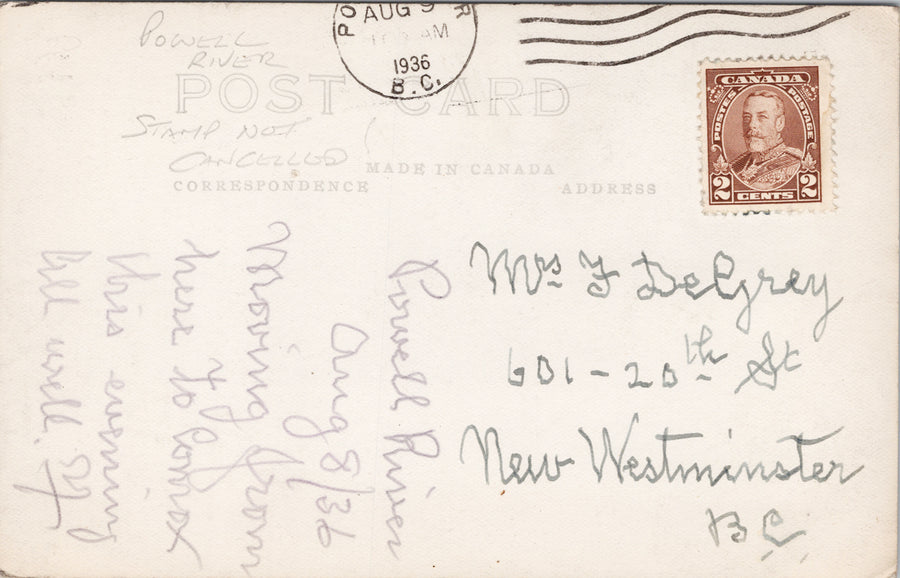 POWELL
RIVER
STAMP NOT
CANCELLED
AUG 9
AM
1936
B.C.
POST CARD
MADE IN CANADA
CORRESPONDENCE
ADDRESS
CANADA
POSTES POSTAGE
2 CENTS 2
Powell River
Aug 8/36
Moving from
here to Comox
this evening
All well.
Mrs F DeGrey
601-20th St
New Westminster
BC